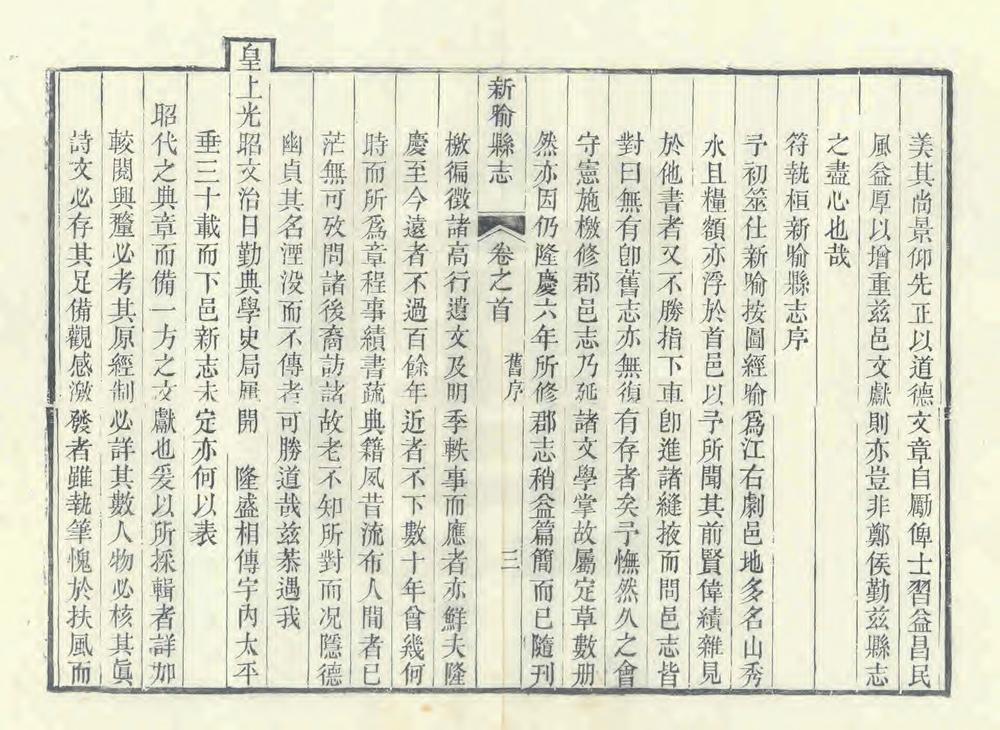 美其尚景仰先正以道德文章自勵俾士習益昌民
風益厚以增重茲邑文獻則亦豈非鄭侯勤茲縣志
之盡心也哉
符執桓新喻縣志序
予初筮仕新喻按圖經喻爲江右劇邑地多名山秀
水且糧額亦浮於首邑以予所聞其前賢偉績雜見
於他書者又不勝指下車卽進諸縫掖而問邑志皆
對曰無有卽舊志亦無復有存者矣予憮然久之會
守憲施檄修郡邑志乃延諸文學掌故屬定草數册
然亦因仍隆慶六年所修郡志稍益篇簡而已隨刊
新喻縣志
卷之首
舊序
三
檄徧徵諸高行遺文及明季軼事而應者亦鮮夫隆
慶至今遠者不過百餘年近者不下數十年曾幾何
時而所爲章程事績書疏典籍夙昔流布人間者已
茫無可攷問諸後裔訪諸故老不知所對而况隱德
幽貞其名湮没而不傳者可勝道哉茲恭遇我
皇上光昭文治日勤典學史局㞕開 隆盛相傳宇内太平
垂三十載而下邑新志未定亦何以表
昭代之典章而備一方之文獻也爰以所採輯者詳加
較閱興釐必考其原經制必詳其數人物必核其眞
詩文必存其足備觀感激發者雖執筆愧於扶風而